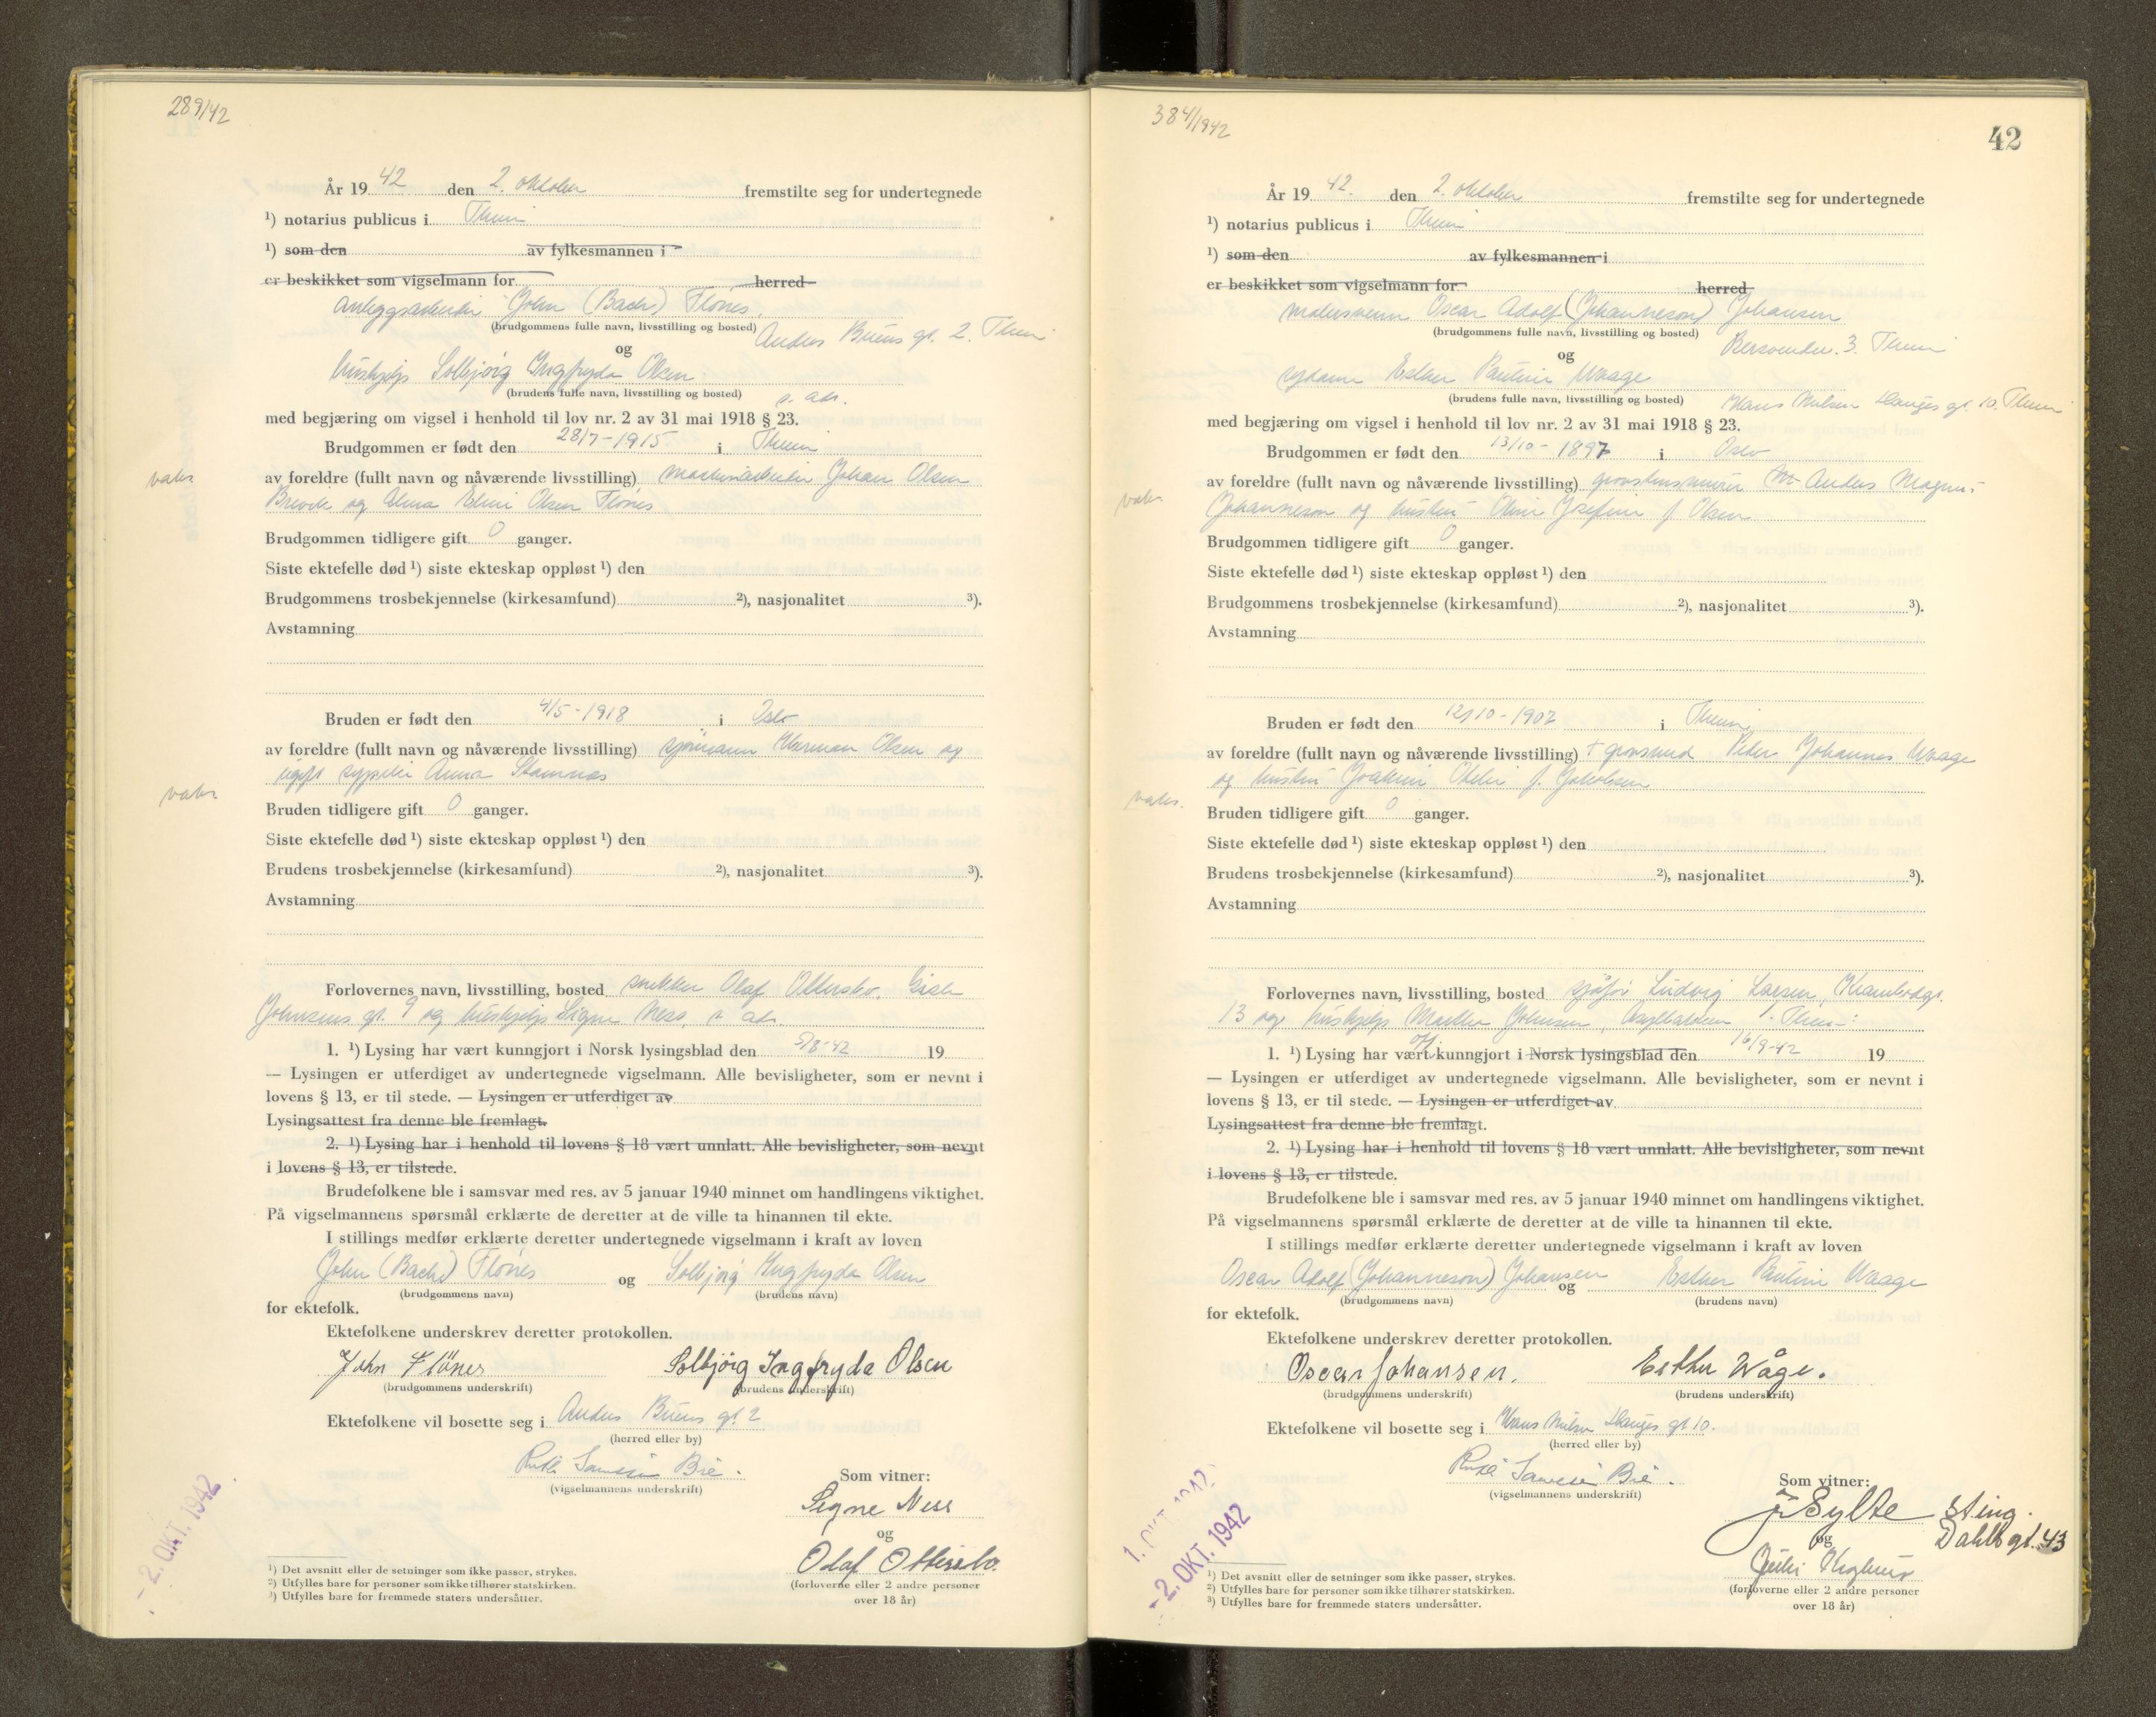 289/42
År 19 42 den 2. oktober fremstilte seg for undertegnede
¹) notarius publicus i Thum
¹) som den av fylkesmannen i
er beskikket som vigselmann for herred
Anleggsarbeider John (Bach) Flönes.
(brudgommens fulle navn, livsstilling og bosted) Anders Buens gt. 2. Thum
og
hushjelp Solbjörg Ingfryda Olsen
(brudens fulle navn, livsstilling og bosted) s. adr.
med begjæring om vigsel i henhold til lov nr. 2 av 31 mai 1918 § 23.
Brudgommen er født den 28/7-1915 i Thum
vaks. av foreldre (fullt navn og nåværende livsstilling) maskinarbeider Johan Olsen
Brevik og Alma Eline Olsen Flönes
Brudgommen tidligere gift 0 ganger.
Siste ektefelle død ¹) siste ekteskap oppløst ¹) den
Brudgommens trosbekjennelse (kirkesamfund) ²), nasjonalitet ³).
Avstamning
Bruden er født den 4/5-1918 i Oslo
av foreldre (fullt navn og nåværende livsstilling) sjömann Herman Olsen og
ugift Anna Stamnas
vaks.
Bruden tidligere gift 0 ganger.
Siste ektefelle død ¹) siste ekteskap oppløst ¹) den
Brudens trosbekjennelse (kirkesamfund) ²), nasjonalitet ³).
Avstamning
Forlovernes navn, livsstilling, bosted snekker Olaf Ottersbo, Gisle
Johnsens gt. 9 og hushjelp Signe Ness, s. adr.
1. ¹) Lysing har vært kunngjort i Norsk lysingsblad den 5/8-42 19
— Lysingen er utferdiget av undertegnede vigselmann. Alle bevisligheter, som er nevnt i
lovens § 13, er til stede. — Lysingen er utferdiget av
Lysingsattest fra denne ble fremlagt.
2. ¹) Lysing har i henhold til lovens § 18 vært unnlatt. Alle bevisligheter, som nevnt
i lovens § 13, er tilstede.
Brudefolkene ble i samsvar med res. av 5 januar 1940 minnet om handlingens viktighet.
På vigselmannens spørsmål erklærte de deretter at de ville ta hinannen til ekte.
I stillings medfør erklærte deretter undertegnede vigselmann i kraft av loven
John (Bach) Flönes og Solbjörg Ingfryda Olsen
(brudgommens navn) (brudens navn)
for ektefolk.
Ektefolkene underskrev deretter protokollen.
John Flönes Solbjörg Ingfryda Olsen
(brudgommens underskrift) (brudens underskrift)
Ektefolkene vil bosette seg i Anders Buens gt. 2
(herred eller by)
Bie.
(vigselmannens underskrift)
Som vitner:
Signe Ness
og
Olaf Ottersbo.
(forloverne eller 2 andre personer
over 18 år)
- 2. OKT. 1942
¹) Det avsnitt eller de setninger som ikke passer, strykes.
²) Utfylles bare for personer som ikke tilhører statskirken.
³) Utfylles bare for fremmede staters undersåtter.
384/1942
42
År 19 42. den 2. oktober fremstilte seg for undertegnede
¹) notarius publicus i Thum
¹) som den av fylkesmannen i
er beskikket som vigselmann for herred
malersvenn Oscar Adolf (Johanneson) Johansen
(brudgommens fulle navn, livsstilling og bosted) 3. Thum
og
sydame Esther Pauline Waage
(brudens fulle navn, livsstilling og bosted) Hans Nilsen Hauges gt. 10. Thum
med begjæring om vigsel i henhold til lov nr. 2 av 31 mai 1918 § 23.
Brudgommen er født den 13/10-1897 i Oslo
av foreldre (fullt navn og nåværende livsstilling) Anders Magnus
vaks. Johanneson og hustru Oline Josefine f. Olsen
Brudgommen tidligere gift 0 ganger.
Siste ektefelle død ¹) siste ekteskap oppløst ¹) den
Brudgommens trosbekjennelse (kirkesamfund) ²), nasjonalitet ³).
Avstamning
Bruden er født den 12/10-1902 i Thum
av foreldre (fullt navn og nåværende livsstilling) + grovsmed Peder Johannes Waage
og hustru f. Jakobsen
vaks.
Bruden tidligere gift 0 ganger.
Siste ektefelle død ¹) siste ekteskap oppløst ¹) den
Brudens trosbekjennelse (kirkesamfund) ²), nasjonalitet ³).
Avstamning
Forlovernes navn, livsstilling, bosted sjåför Ludvig Larsen,
13 og hushjelp Martha Johnsen,
1. ¹) Lysing har vært off. kunngjort i Norsk lysingsblad den 16/9-42 19
— Lysingen er utferdiget av undertegnede vigselmann. Alle bevisligheter, som er nevnt i
lovens § 13, er til stede. — Lysingen er utferdiget av
Lysingsattest fra denne ble fremlagt.
2. ¹) Lysing har i henhold til lovens § 18 vært unnlatt. Alle bevisligheter, som nevnt
i lovens § 13, er tilstede.
Brudefolkene ble i samsvar med res. av 5 januar 1940 minnet om handlingens viktighet.
På vigselmannens spørsmål erklærte de deretter at de ville ta hinannen til ekte.
I stillings medfør erklærte deretter undertegnede vigselmann i kraft av loven
Oscar Adolf (Johanneson) Johansen og Esther Pauline Waage
(brudgommens navn) (brudens navn)
for ektefolk.
Ektefolkene underskrev deretter protokollen.
Oscar Johansen. Esther Wåge.
(brudgommens underskrift) (brudens underskrift)
Ektefolkene vil bosette seg i Hans Nilsen Hauges gt. 10.
(herred eller by)
Bie.
(vigselmannens underskrift)
Som vitner:
Sylte Sting.
og Dahls gt. 43
(forloverne eller 2 andre personer
over 18 år)
1. OKT. 1942
- 2. OKT. 1942
¹) Det avsnitt eller de setninger som ikke passer, strykes.
²) Utfylles bare for personer som ikke tilhører statskirken.
³) Utfylles bare for fremmede staters undersåtter.